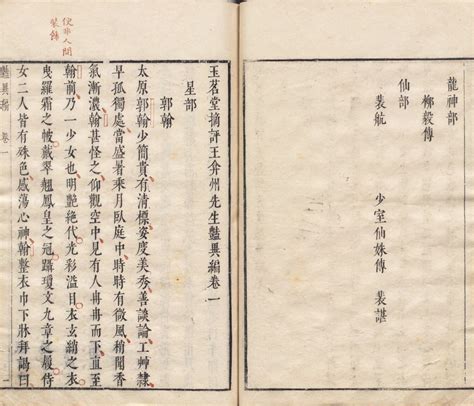 龍神部
柳毅傳
仙部
裴航
少室仙姝傳　裴諶
玉茗堂摘評王弇州先生豔異編卷一
星部
郭翰
太原郭翰少簡貴有清標姿度美秀善談論工艸隸
早孤獨處當盛暑乘月臥庭中時時有微風稍聞香
氣漸濃翰甚怪之仰觀空中見有人冉冉而下直至
翰前乃一少女也明艷絕代光彩溢目衣玄綃之衣
曳羅霜之帔戴翠翹鳳皇之冠躡瓊文九章之履侍
女二人皆有殊色感蕩心神翰整衣巾下牀拜謁曰
豔異編　卷一　一
仗非人間
裝飾